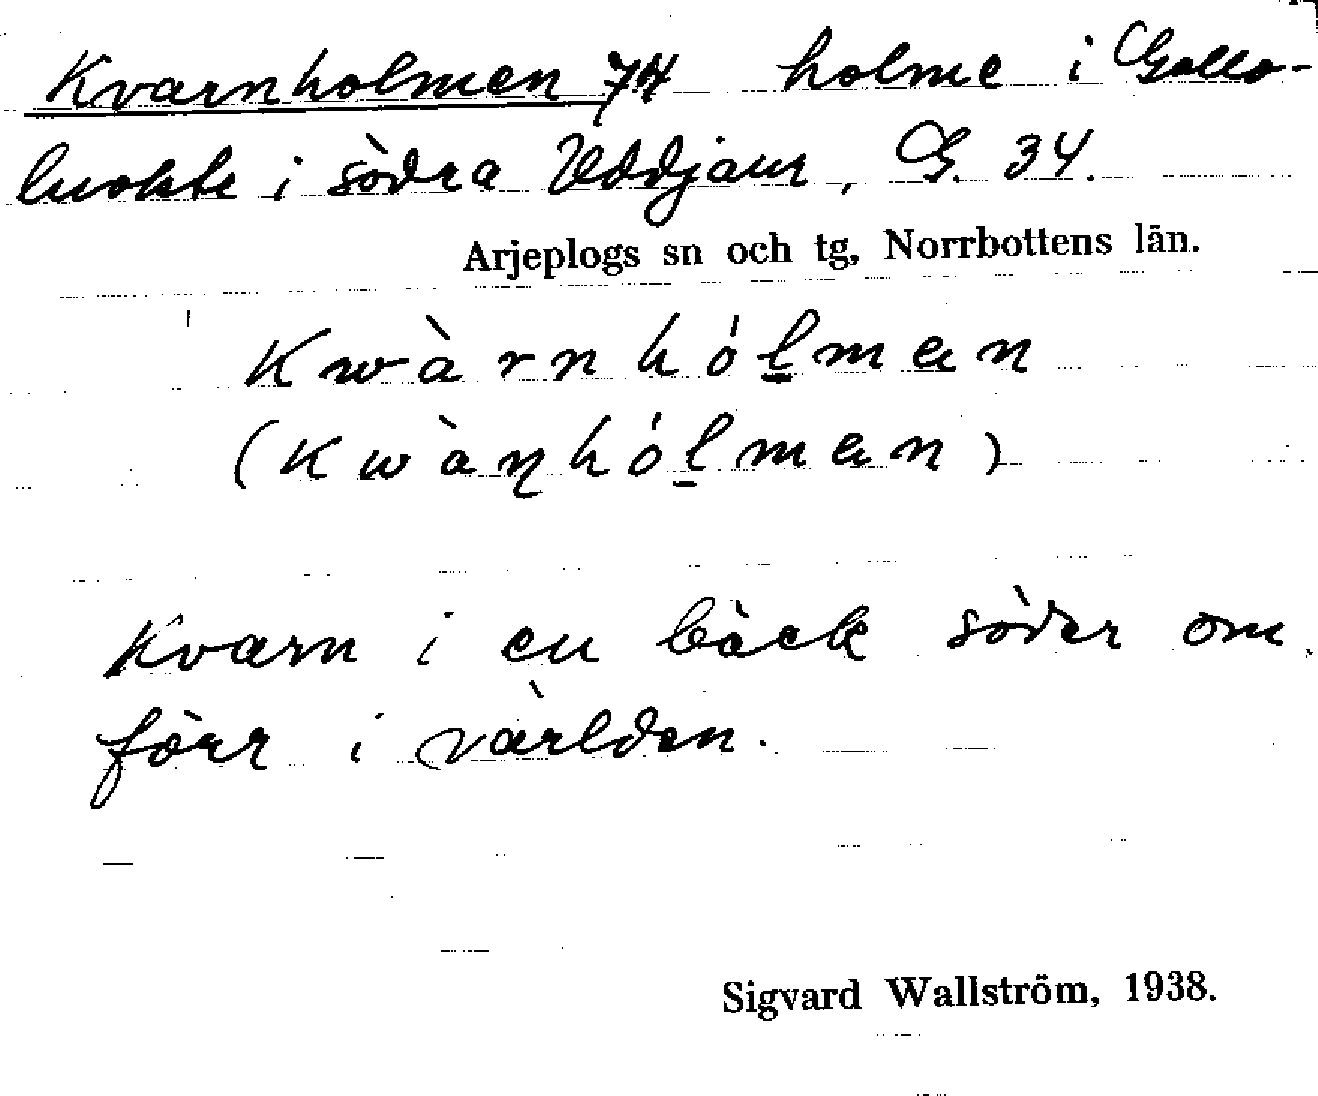 Kvarnholmen 74 holme i Gollo-
luokte i södra Uddjaur, G. 34.
Arjeplogs sn och tg, Norrbottens län.
Kwàrnhólman
(Kwàṇhólman)
Kvarn i en bäck söder om
förr i världen.
Sigvard Wallström, 1938.